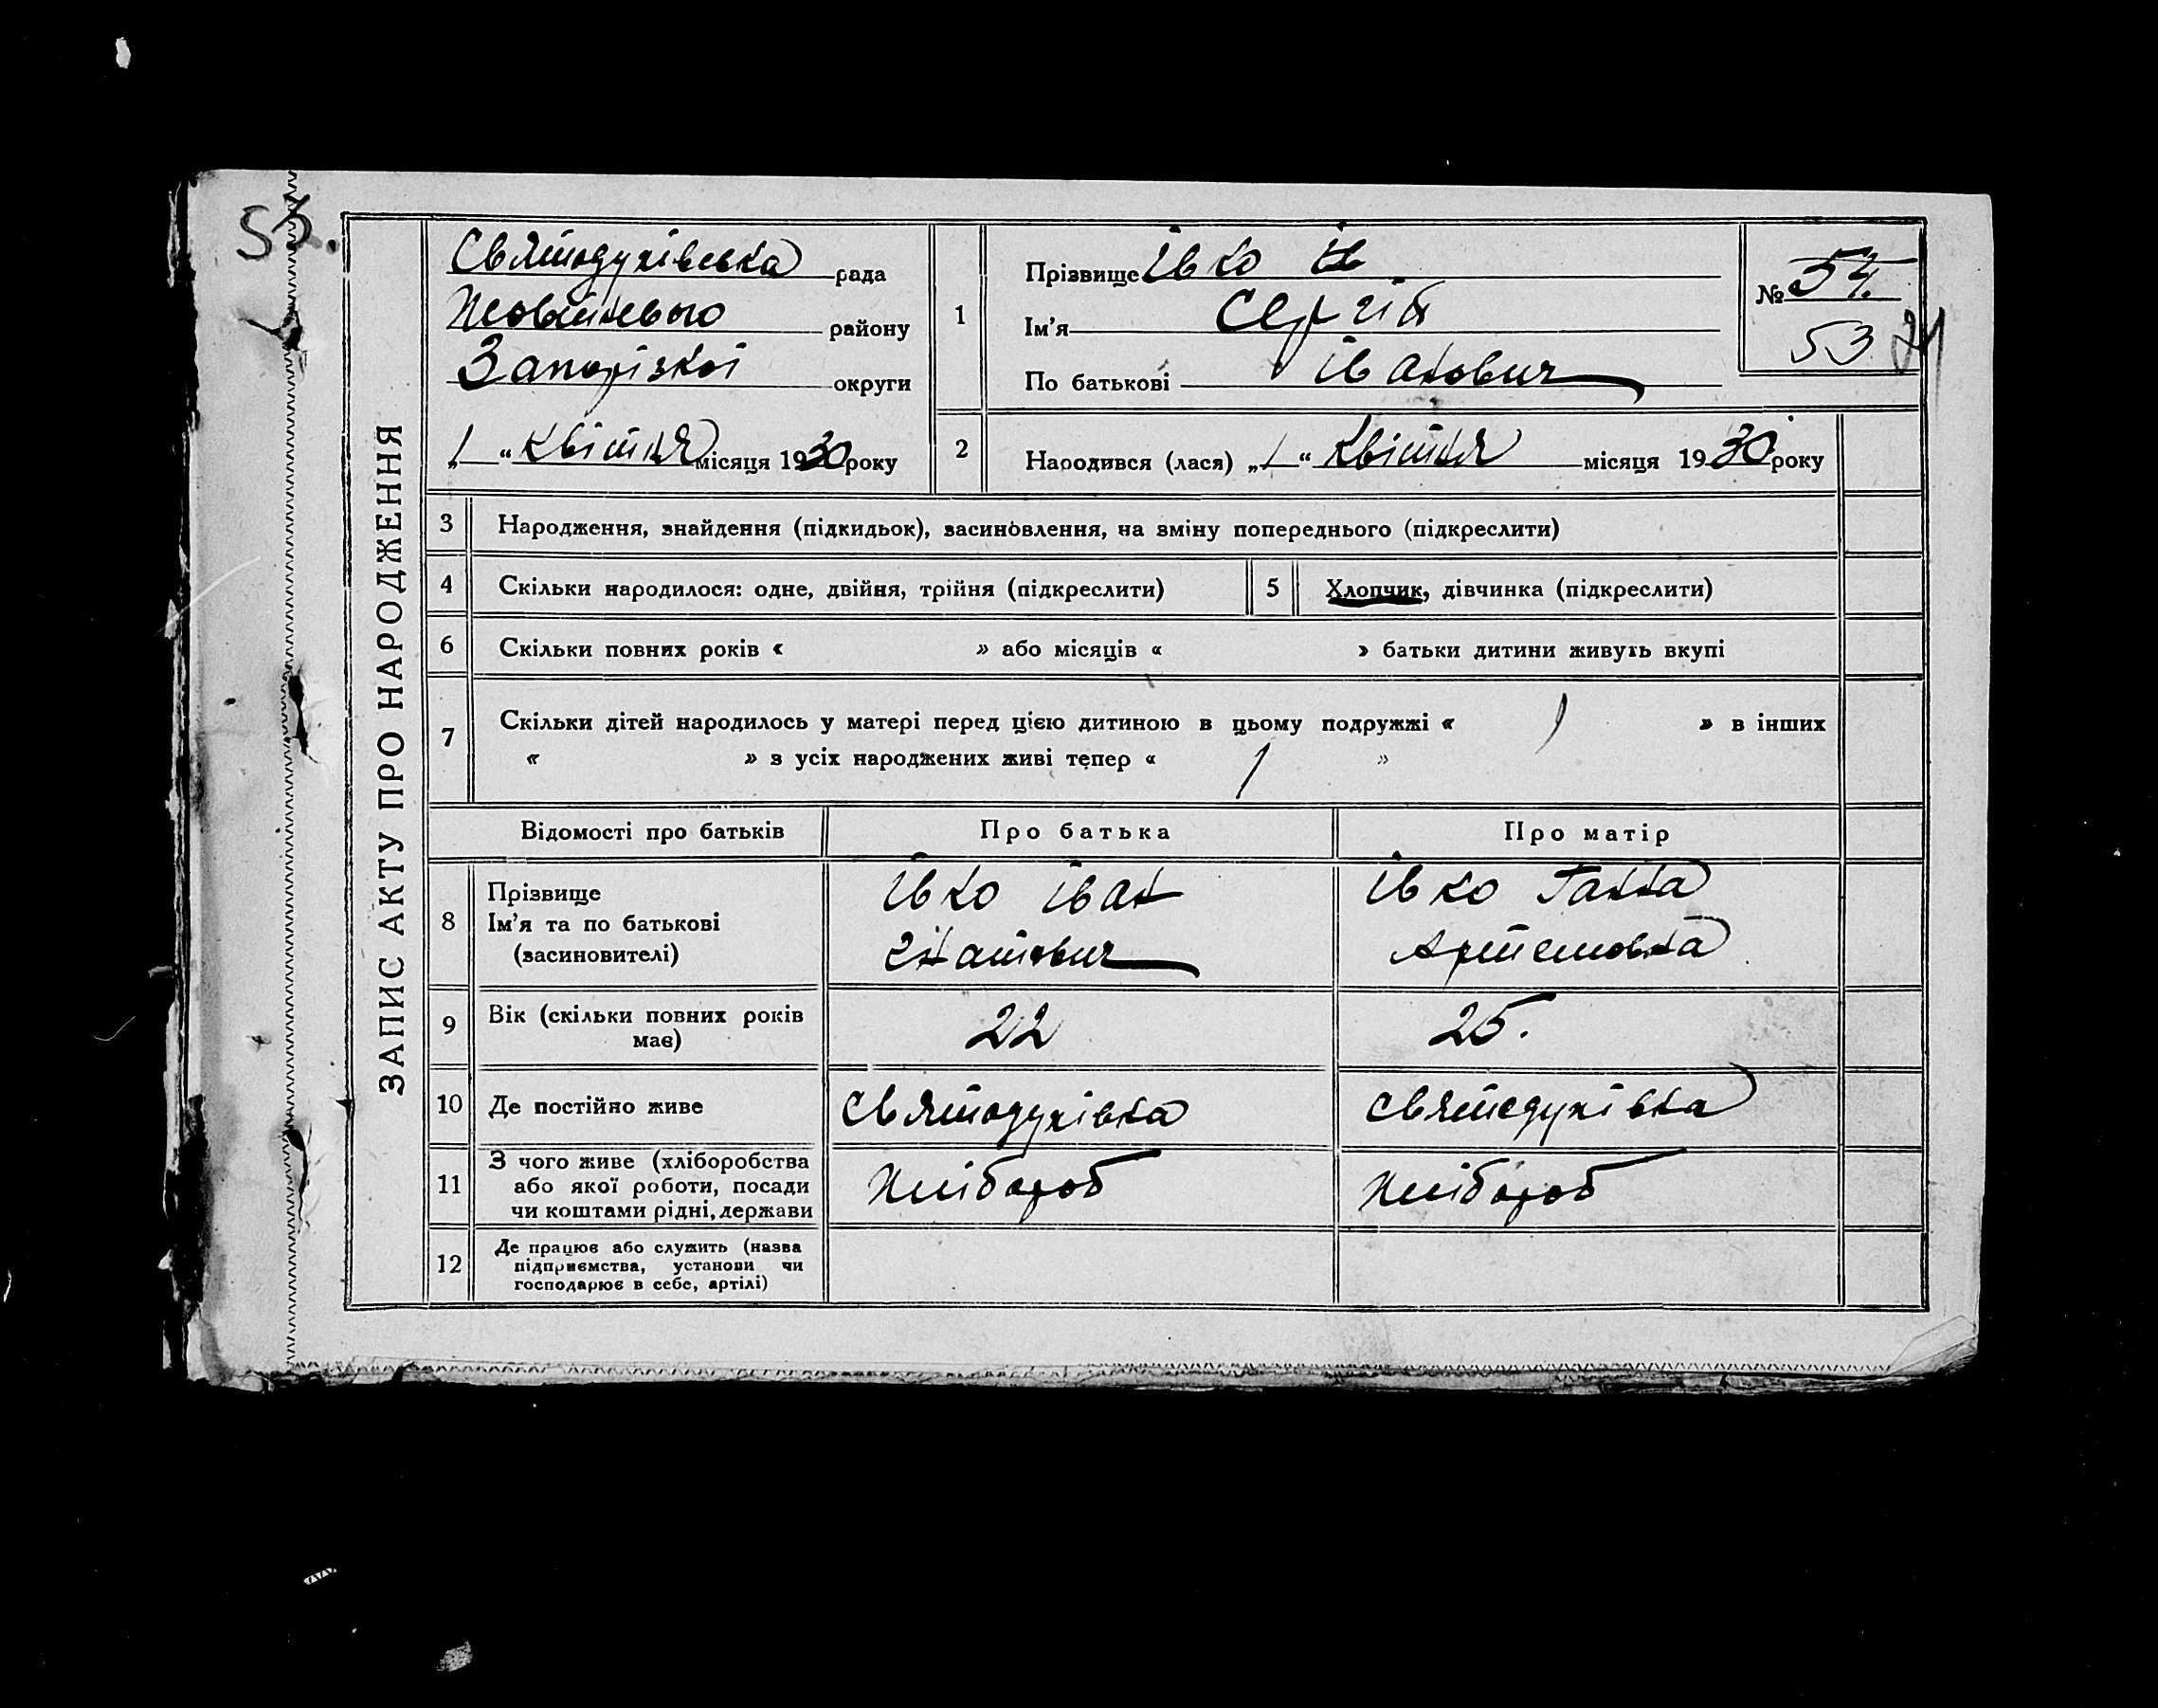 53.
ЗАПИС АКТУ ПРО НАРОДЖЕННЯ
Святодухівська рада
Жовтневого району
Запорізкої округи
„1“ Квітня місяця 1930 року
1
Прізвище Івко Ів
Ім'я Сергій
По батькові Іванович
№ 54.
53
2
Народився (лася) „1“ Квітня місяця 1930 року
3 Народження, знайдення (підкидьок), засиновлення, на зміну попереднього (підкреслити)
4 Скільки народилося: одне, двійня, трійня (підкреслити)
5 Хлопчик, дівчинка (підкреслити)
6 Скільки повних років « » або місяців « » батьки дитини живуть вкупі
7 Скільки дітей народилось у матері перед цією дитиною в цьому подружжі « 1 » в інших
« » з усіх народжених живі тепер « 1 »
Відомості про батьків Про батька Про матір
8
Прізвище
Ім'я та по батькові
(засиновителі)
Івко Іван
Гнатович
Івко Ганна
Артемовна
9
Вік (скільки повних років
має)
22
25.
10 Де постійно живе Святодухівка Святодухівка
11
З чого живе (хліборобства
або якої роботи, посади
чи коштами рідні, держави
Хлібороб
Хлібороб
12
Де працює або служить (назва
підприємства, установи чи
господарює в себе, артілі)